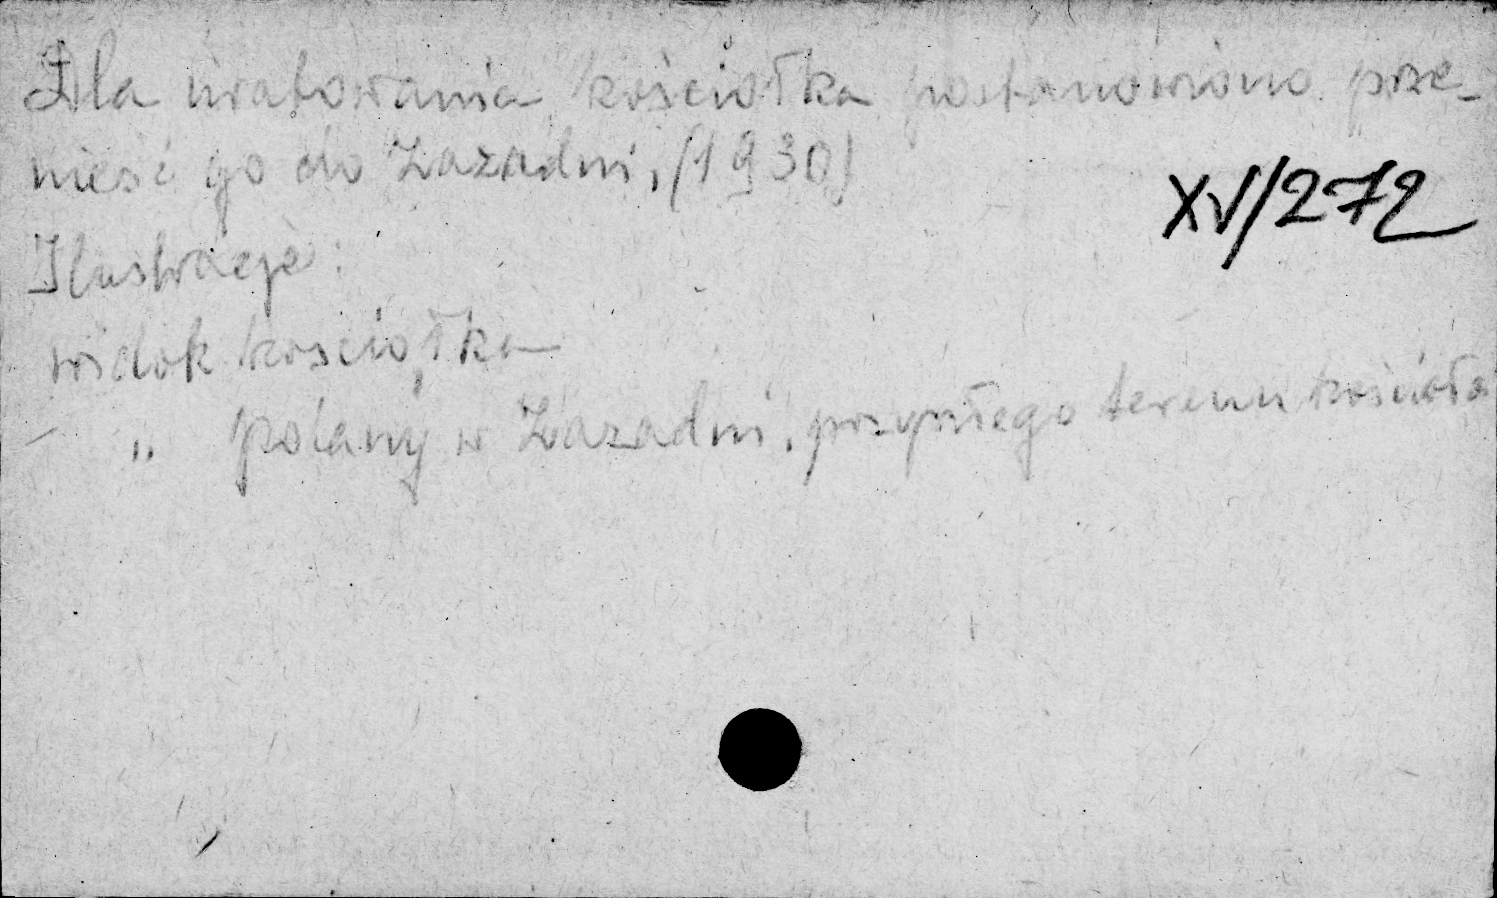 Dla uratowania kościołka postanowiono prze-
nieść go do Zazadni, (1930)
XV/272
Ilustracje:
widok kościołka
" polany w Zazadni, przyszłego terenu kościoła